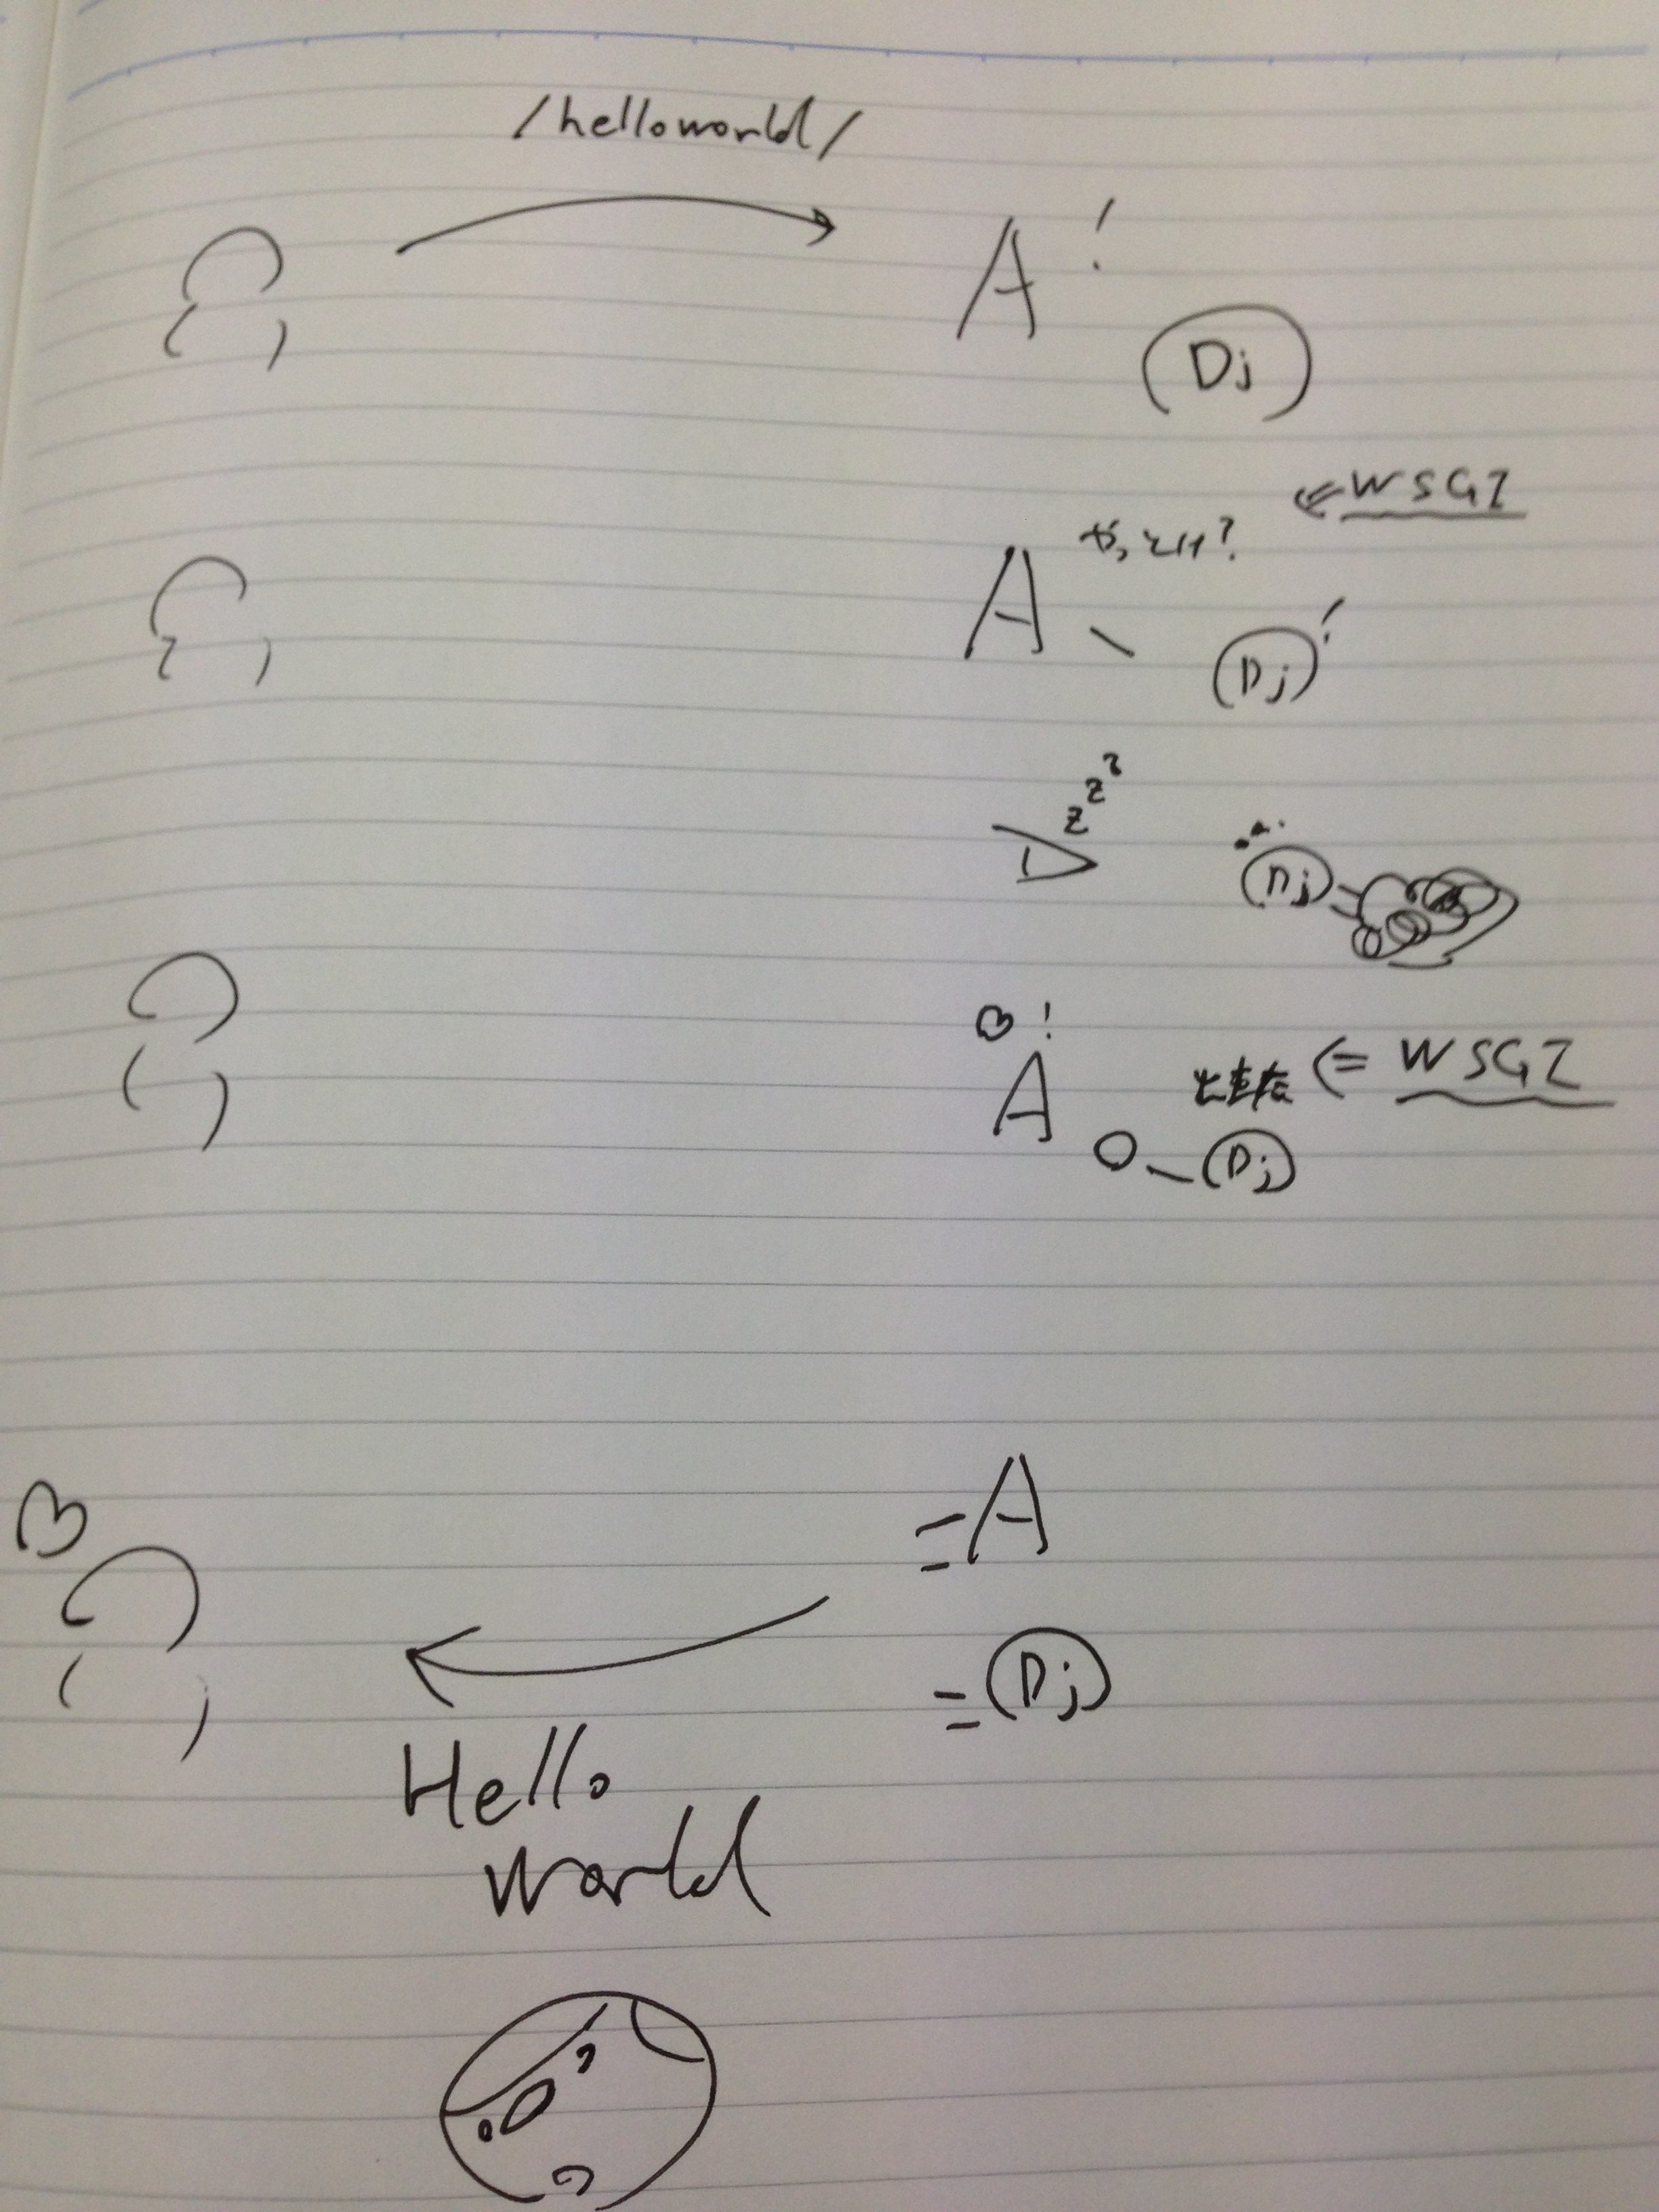 /helloworld/
A !
Dj
⇐ WSGI
A
Dj !
zzz
A
Dj
!
A
⇐ WSGI
Dj
A
Dj
Hello
World